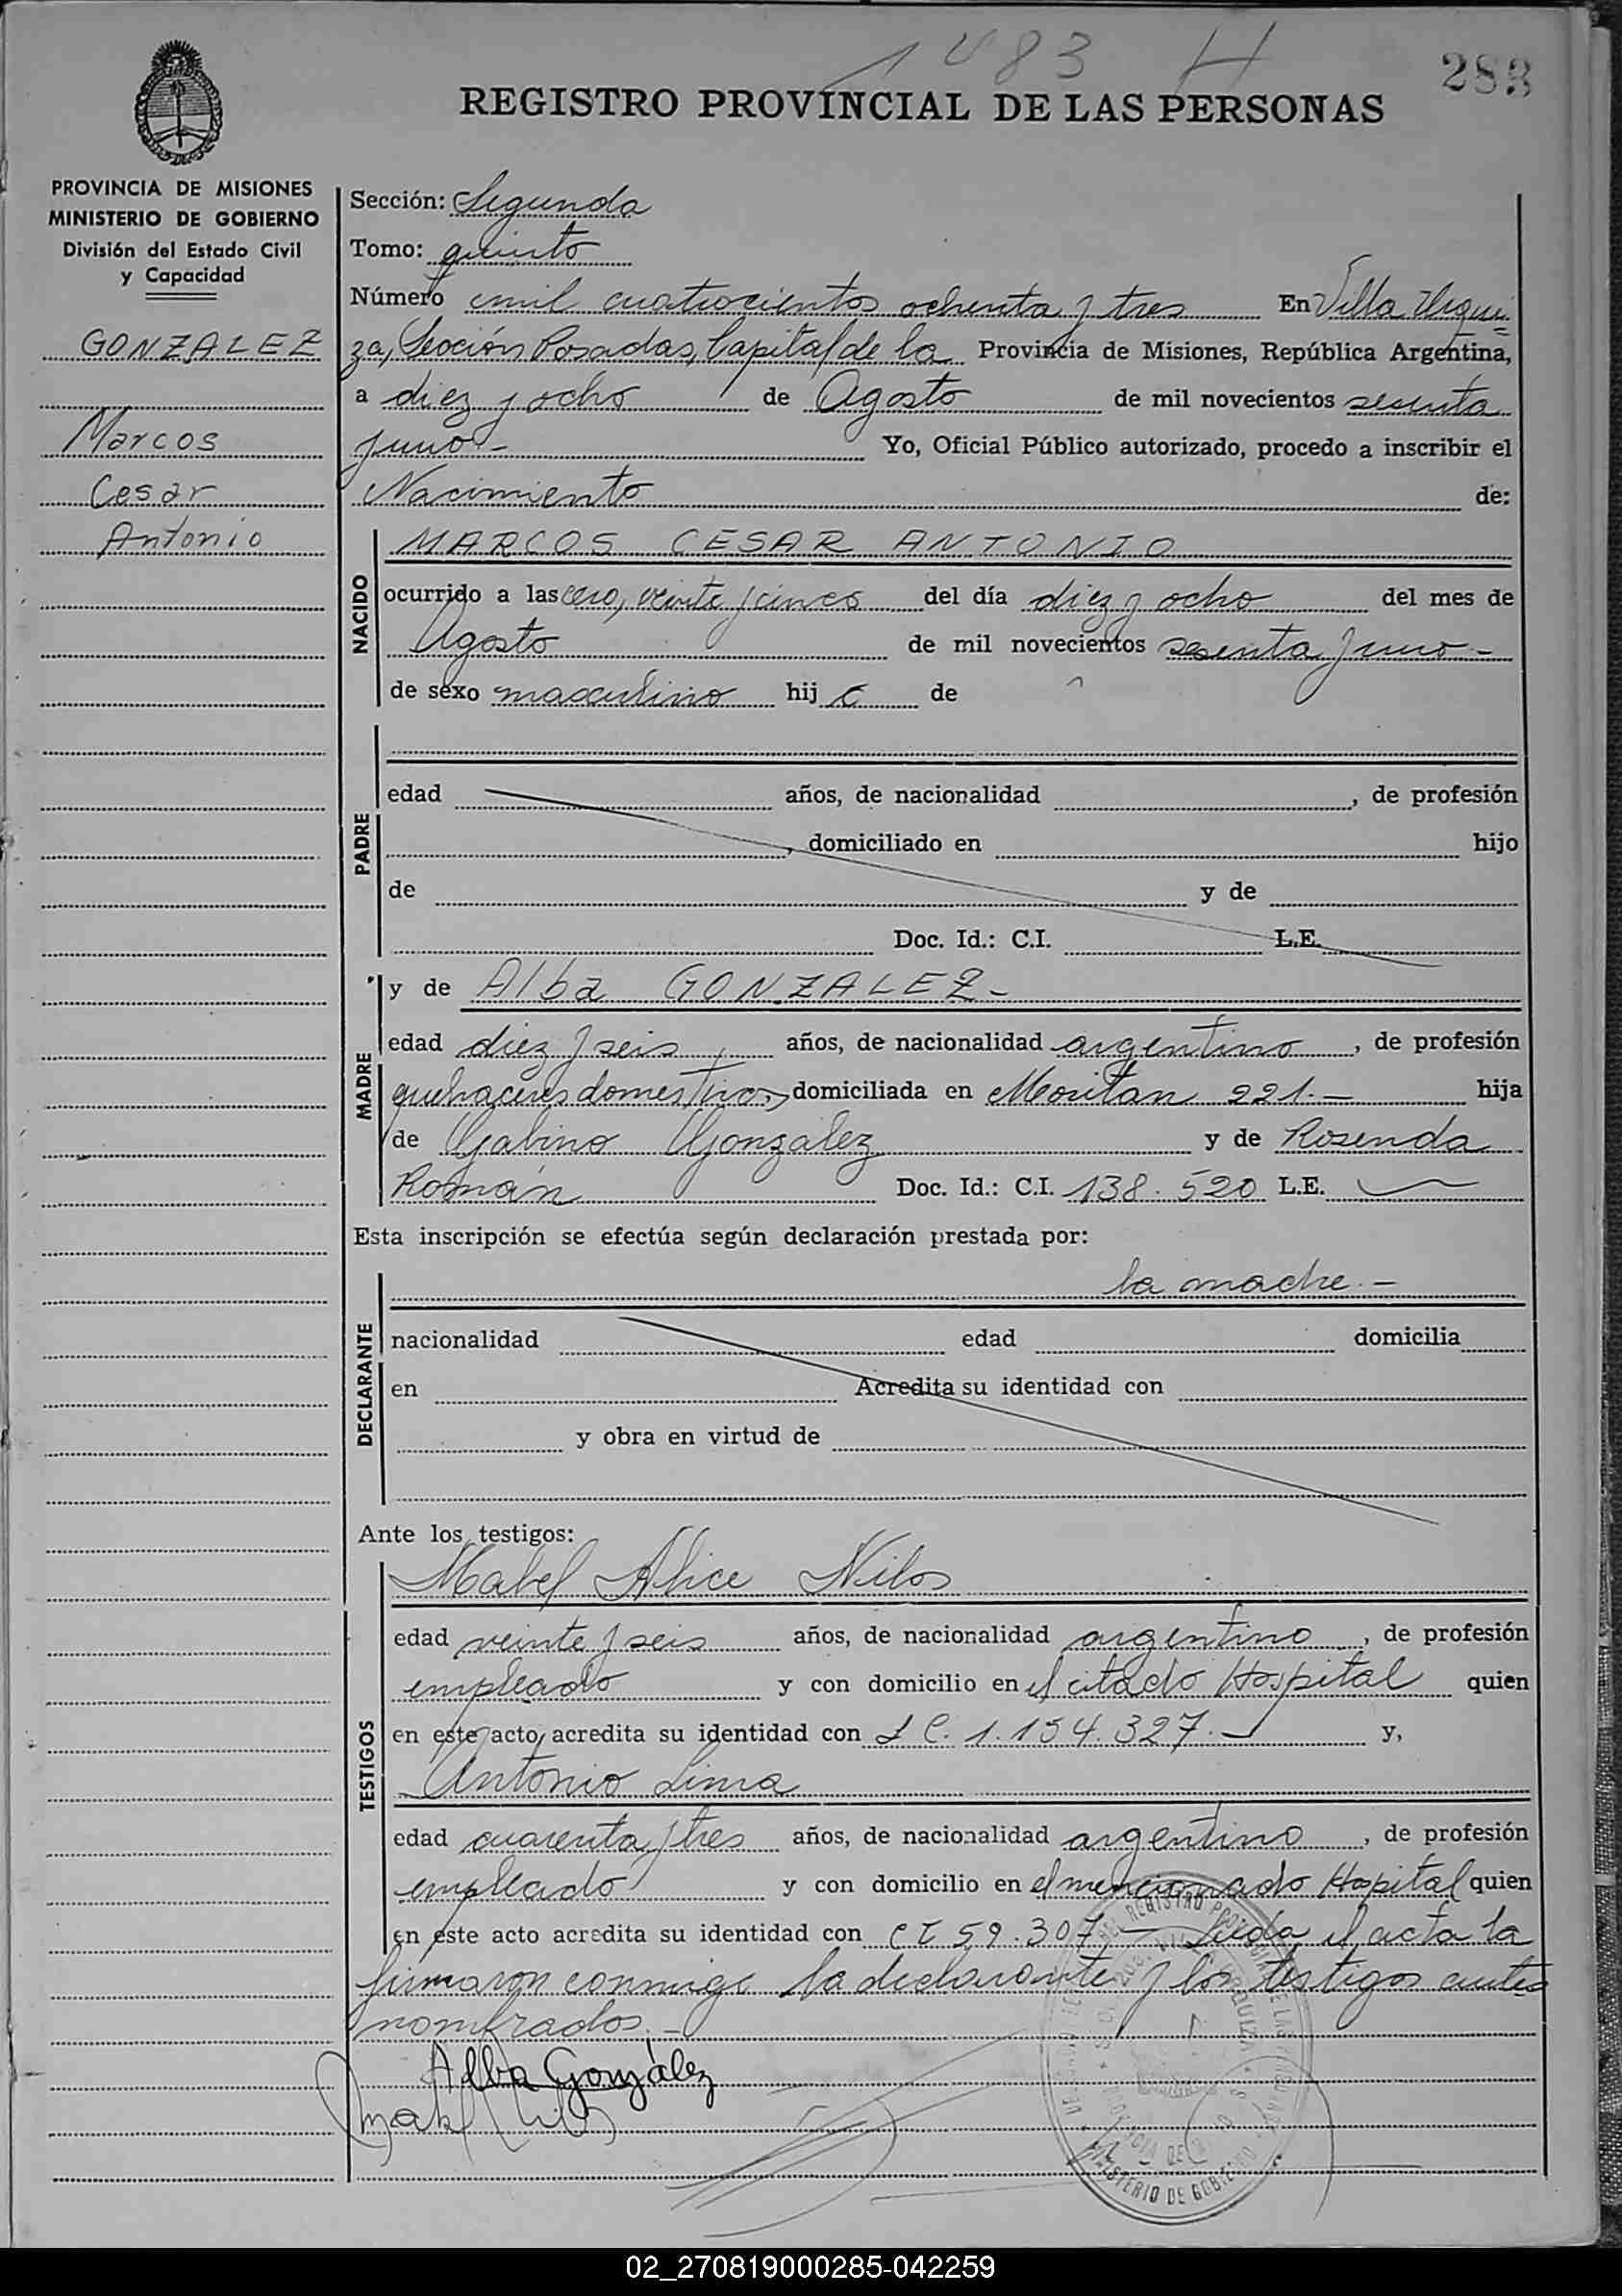 1483 H
283
REGISTRO PROVINCIAL DE LAS PERSONAS
PROVINCIA DE MISIONES
MINISTERIO DE GOBIERNO
División del Estado Civil
y Capacidad
GONZALEZ
Marcos
Cesar
Antonio
Sección: Segunda
Tomo: quinto
Número mil cuatrocientos ochenta y tres En Villa Urqui
za, Sección Posadas, Capital de la Provincia de Misiones, República Argentina,
a diez y ocho de Agosto de mil novecientos sesenta
y uno - Yo, Oficial Público autorizado, procedo a inscribir el
Nacimiento de:
NACIDO
MARCOS CESAR ANTONIO
ocurrido a las cero, veinte y cinco del día diez y ocho del mes de
Agosto de mil novecientos sesenta y uno -
de sexo masculino hij o de
PADRE
edad años, de nacionalidad , de profesión
, domiciliado en hijo
de y de
Doc. Id.: C.I. L.E.
MADRE
y de Alba GONZALEZ -
edad diez y seis años, de nacionalidad argentino , de profesión
quehaceres domesticos, domiciliada en 221. - hija
de Gabino González y de Rosenda
Román Doc. Id.: C.I. 138.520 L.E.
Esta inscripción se efectúa según declaración prestada por:
DECLARANTE
la madre. -
nacionalidad edad domicilia
en Acredita su identidad con
y obra en virtud de
Ante los testigos:
TESTIGOS
Mabel Alice Nilos
edad veinte y seis años, de nacionalidad argentino , de profesión
empleado y con domicilio en el citado Hospital quien
en este acto acredita su identidad con L C. 1.154.327. - y,
Antonio Lima
edad cuarenta y tres años, de nacionalidad argentino , de profesión
empleado y con domicilio en el mencionado Hospital quien
en este acto acredita su identidad con C I 59.307, - Leida el acta la
firmaron conmigo la declarante y los testigos antes
nombrados. -
Alba González
MINISTERIO DE GOBIERNO
02_270819000285-042259